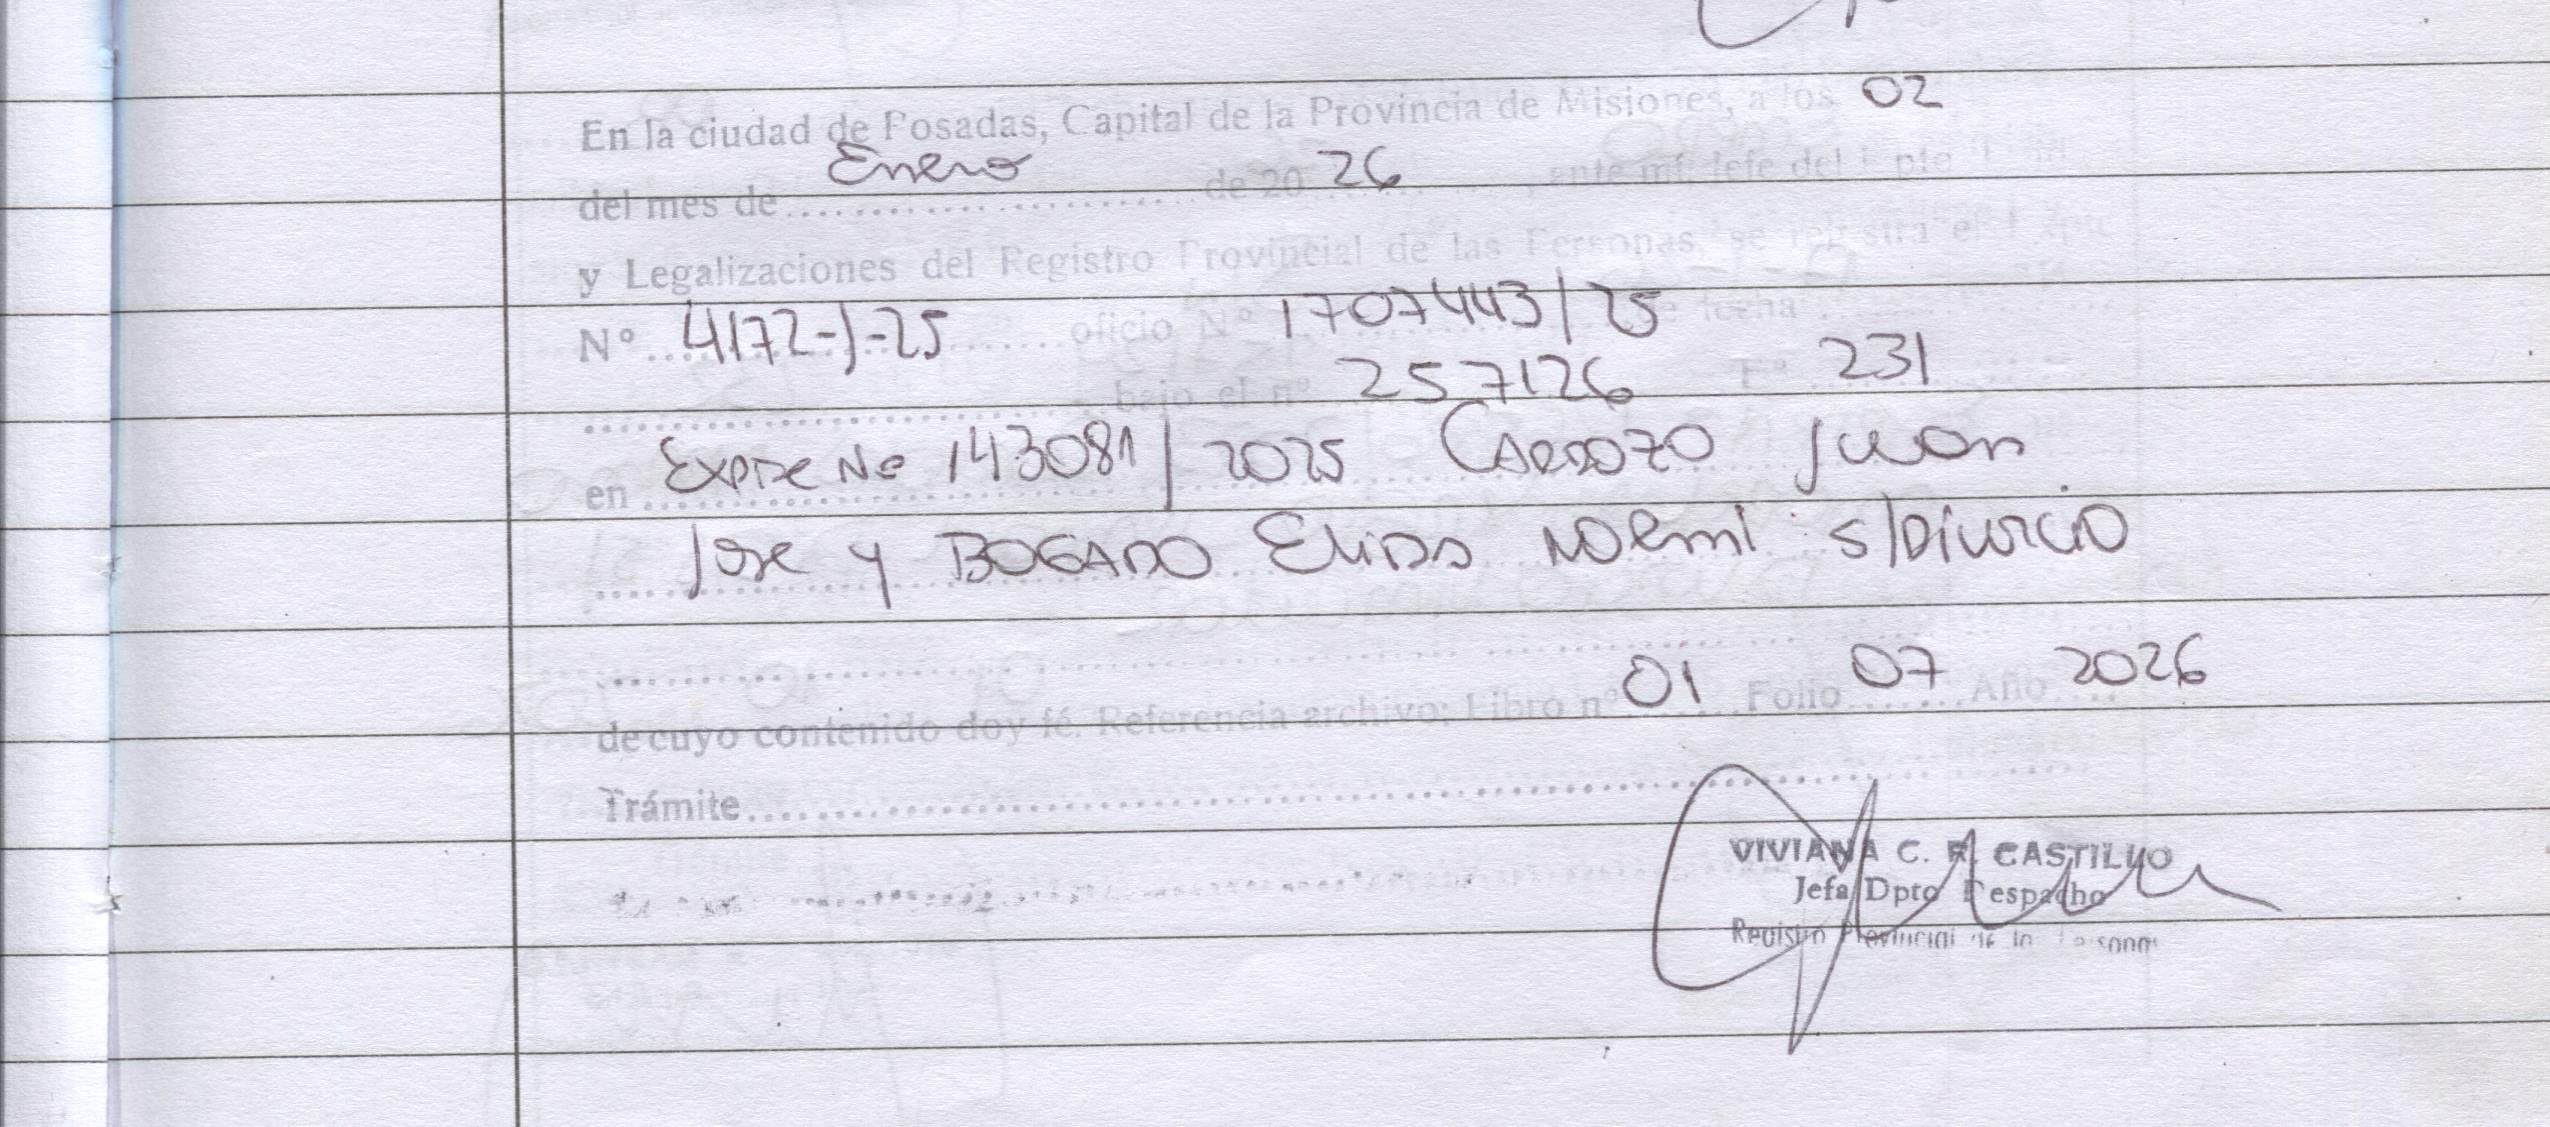 En la ciudad de Posadas, Capital de la Provincia de Misiones, a los 02
del mes de Enero de 2026, ante mí, Jefe del Dpto
y Legalizaciones del Registro Provincial de las Personas, se registra el
Nº 4172-J-25 oficio Nº 17077443/25 de fecha
bajo el nº 257126 Fº 231
en Expte Nº 143081/2025 CARDOZO Juan
Jose y BOGADO Elida Noemi s/Divorcio
de cuyo contenido doy fé. Referencia archivo: Libro nº 01 Folio 07 Año 2026
Trámite
VIVIANA C. R. CASTILLO
Jefa Dpto Despacho
Registro Provincial de las Personas